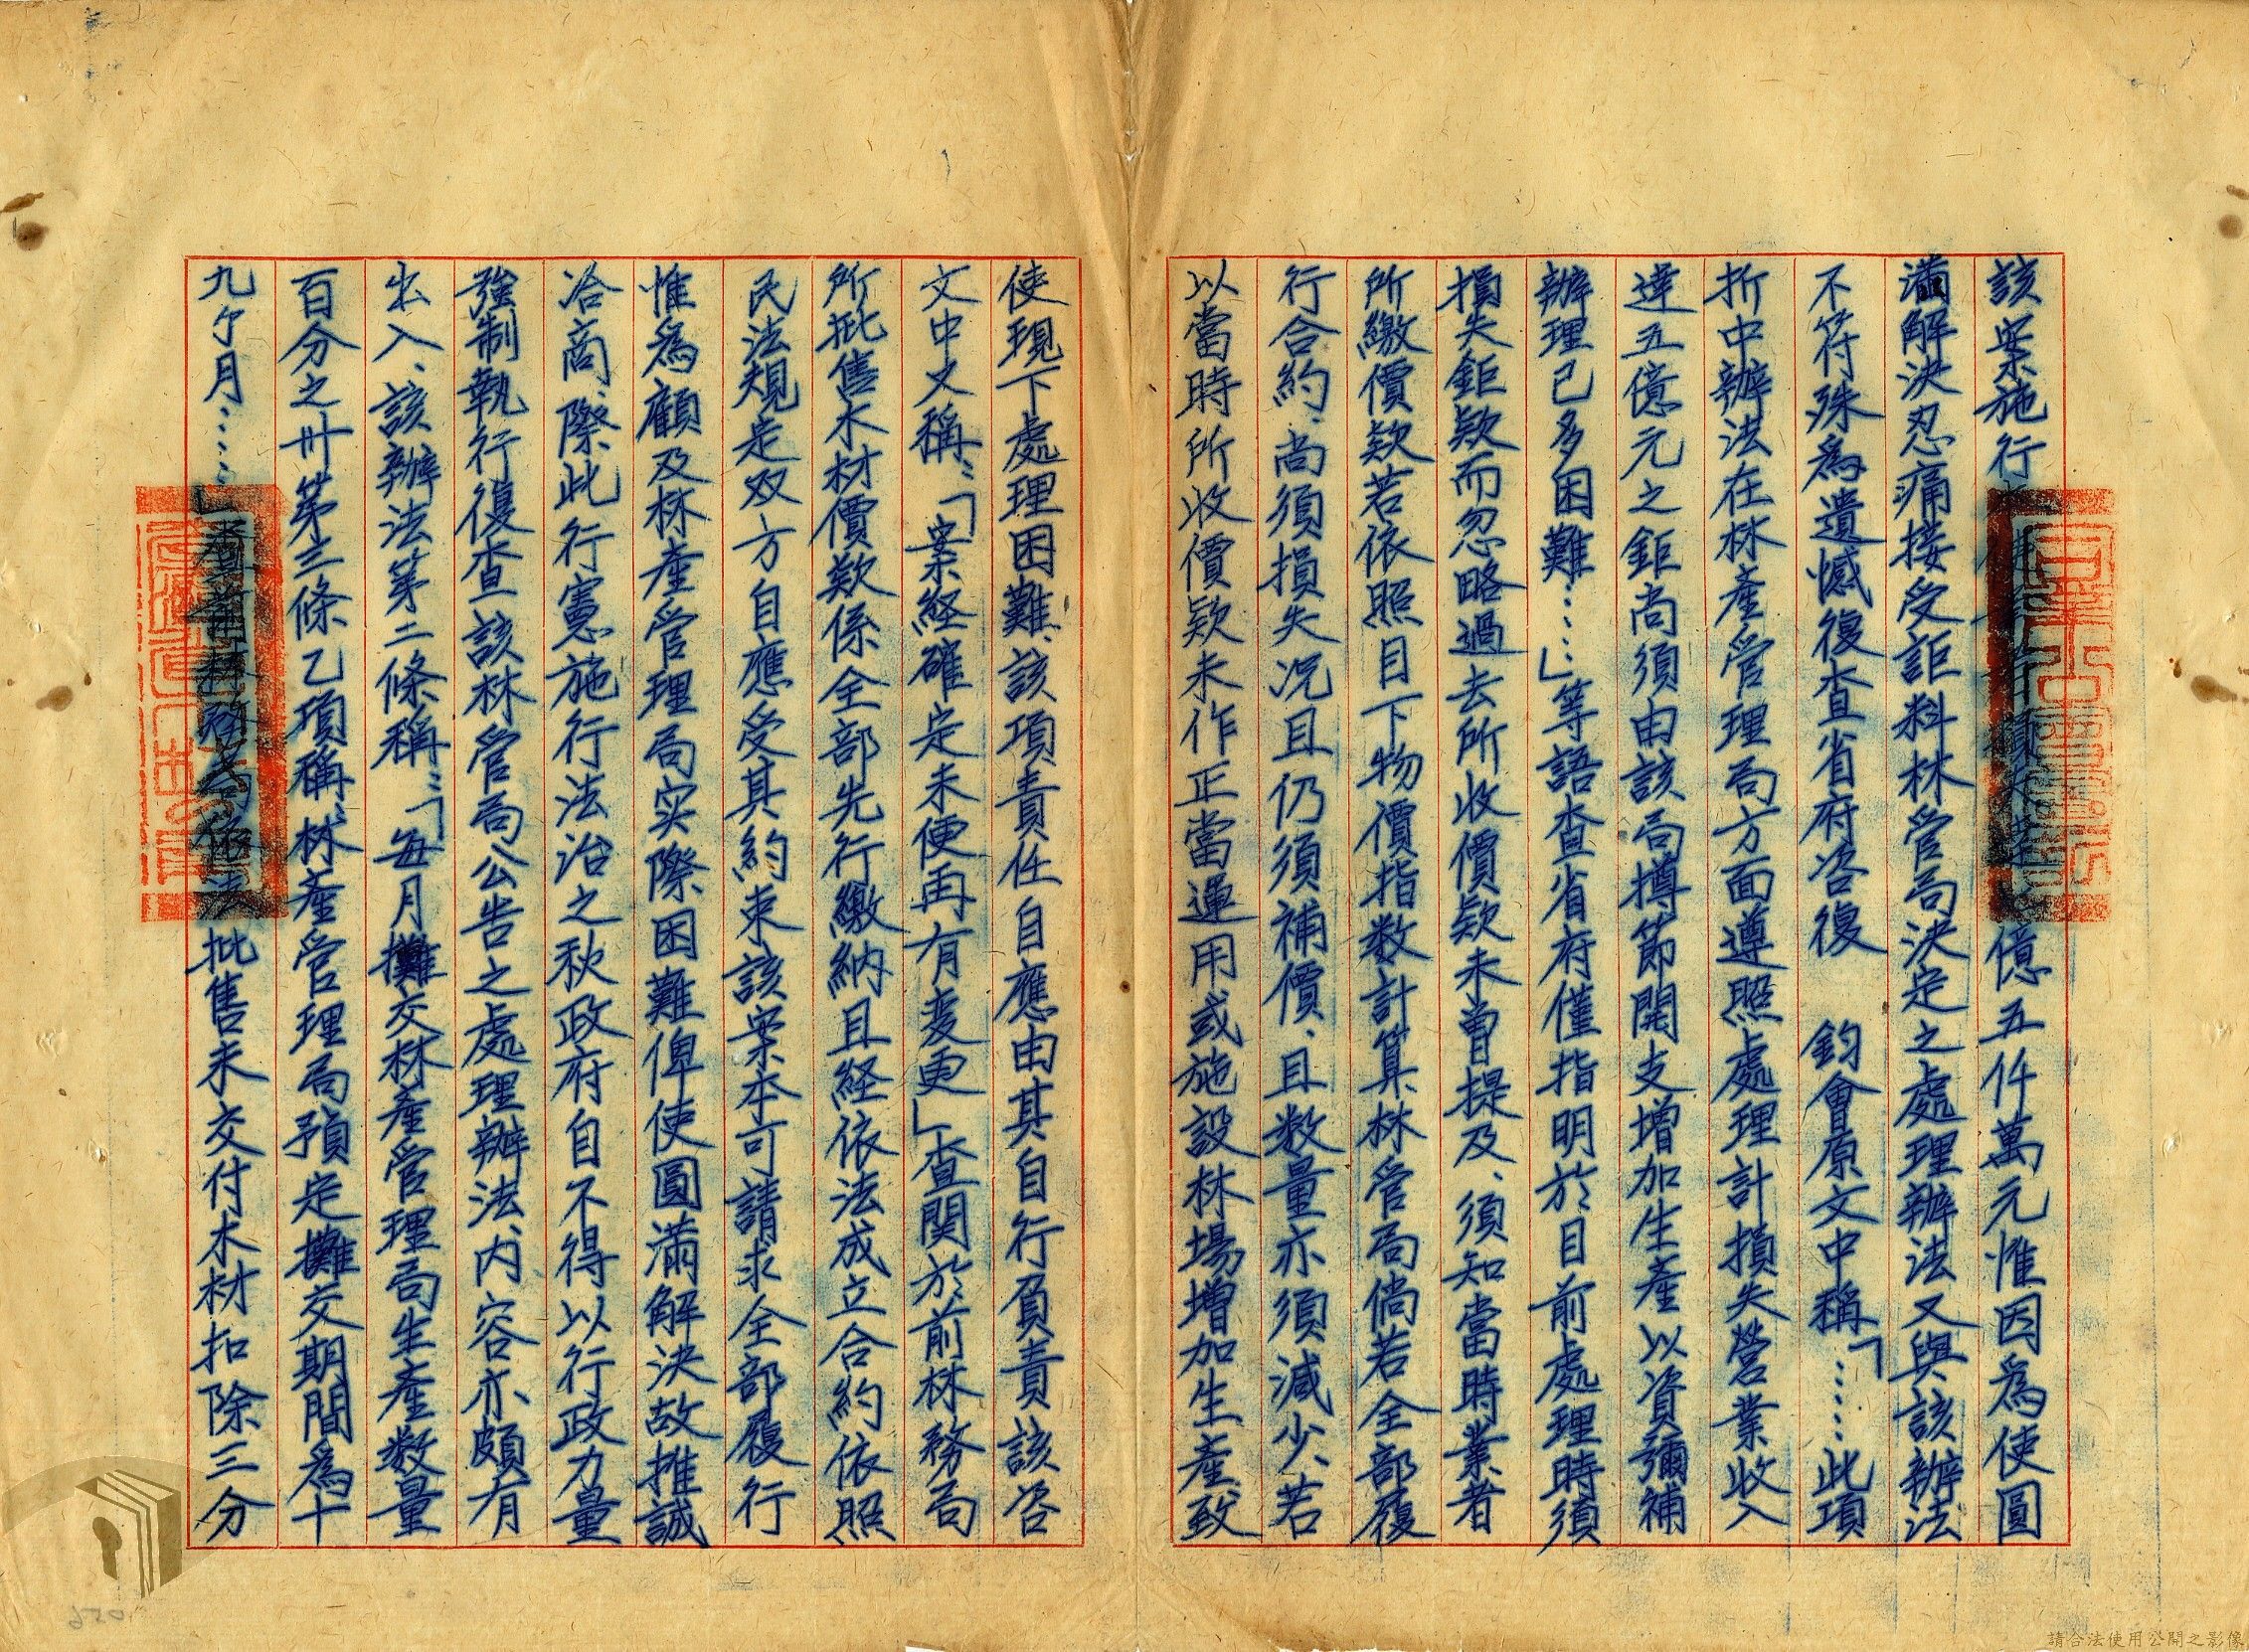 該案施行損失達億五仟萬元惟因為使圓
滿解決忍痛接受詎料林管局決定之處理辦法又與該辦法
不符殊為遺憾復查省府咨復　鈞會原文中稱「……此項
折中辦法在林產管理局方面遵照處理計損失營業收入
達五億元之鉅尚須由該局撙節開支增加生產以資彌補
辦理已多困難……」等語查省府僅指明於目前處理時須
損失鉅欵而忽略過去所收價欵未曾提及、須知當時業者
所繳價欵若依照目下物價指数計算林管局倘若全部履
行合約、尚須損失况且仍須補價、且数量亦須減少、若
以當時所收價欵未作正當運用或施設林場增加生產、致
使現下處理困難、該項責任自應由其自行負責該咨
文中又稱：「案経確定未便再有变更」查関於前林務局
所批售木材價欵係全部先行繳納且経依法成立合約依照
民法規定双方自應受其約束該案本可請求全部履行
惟為顧及林產管理局实際困難俾使圓滿解決故推誠
洽商、際此行憲施行法治之秋政府自不得以行政力量
強制執行復查該林管局公告之處理辦法、内容亦頗有
出入、該辦法第二條稱：「每月攤交林產管理局生產数量
百分之卅第三條乙項稱、林產管理局預定攤交期間為十
九ケ月……」查前林務局依法批售未交付木材扣除三分
請合法使用公開之影像